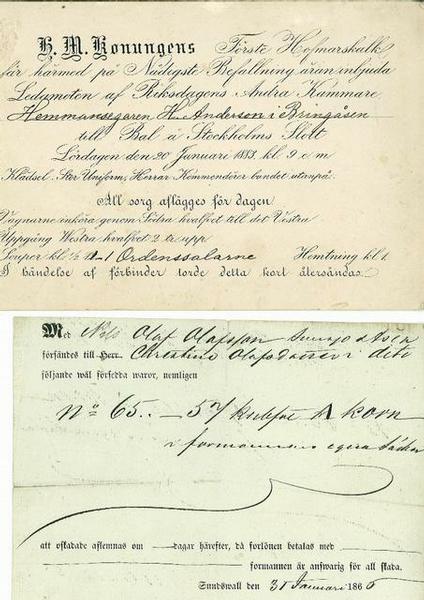 H. M. Konungens Förste Hofmarskalk
får härmed på Nådigste Befallning äran inbjuda
Ledamoten af Riksdagens Andra Kammare,
Hemmansegaren H. Anderson i Bringåsen
till Bal å Stockholms Slott
Lördagen den 20 Januari 1883. kl 9 e m
Klädsel: Stor Uniform, Herrar Kommendörer bandet utanpå.
All sorg aflägges för dagen
Vagnarne inköra genom Södra hvalfvet till det Vestra
Uppgång Westra hvalfvet 2 tr. upp
Souper kl ½ 12-1 Ordenssalarne Hemtning kl 1.
I händelse af förhinder torde detta kort återsändas.
Med Nils Olof Olofsson
försändes till Herr Christina Olofsdotter i
följande wäl försedda waror, nemligen
No 65.. — 57 kubfot korn
i formannens egna säckar
att oskadade aflemnas om dagar härefter, då forlönen betalas med
formannen är answarig för all skada.
Sundswall den 31 Januari 1866